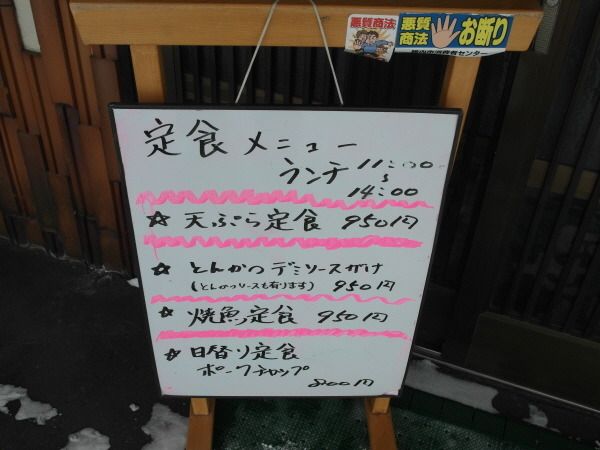 悪質商法
悪質
商法
お断り
定食メニュー
ランチ 11:00
〜
14:00
☆ 天ぷら定食 950円
☆ とんかつデミソースがけ
(とんかつソースも有ります) 950円
☆ 焼魚定食 950円
☆ 日替り定食
ポークチャップ
800円